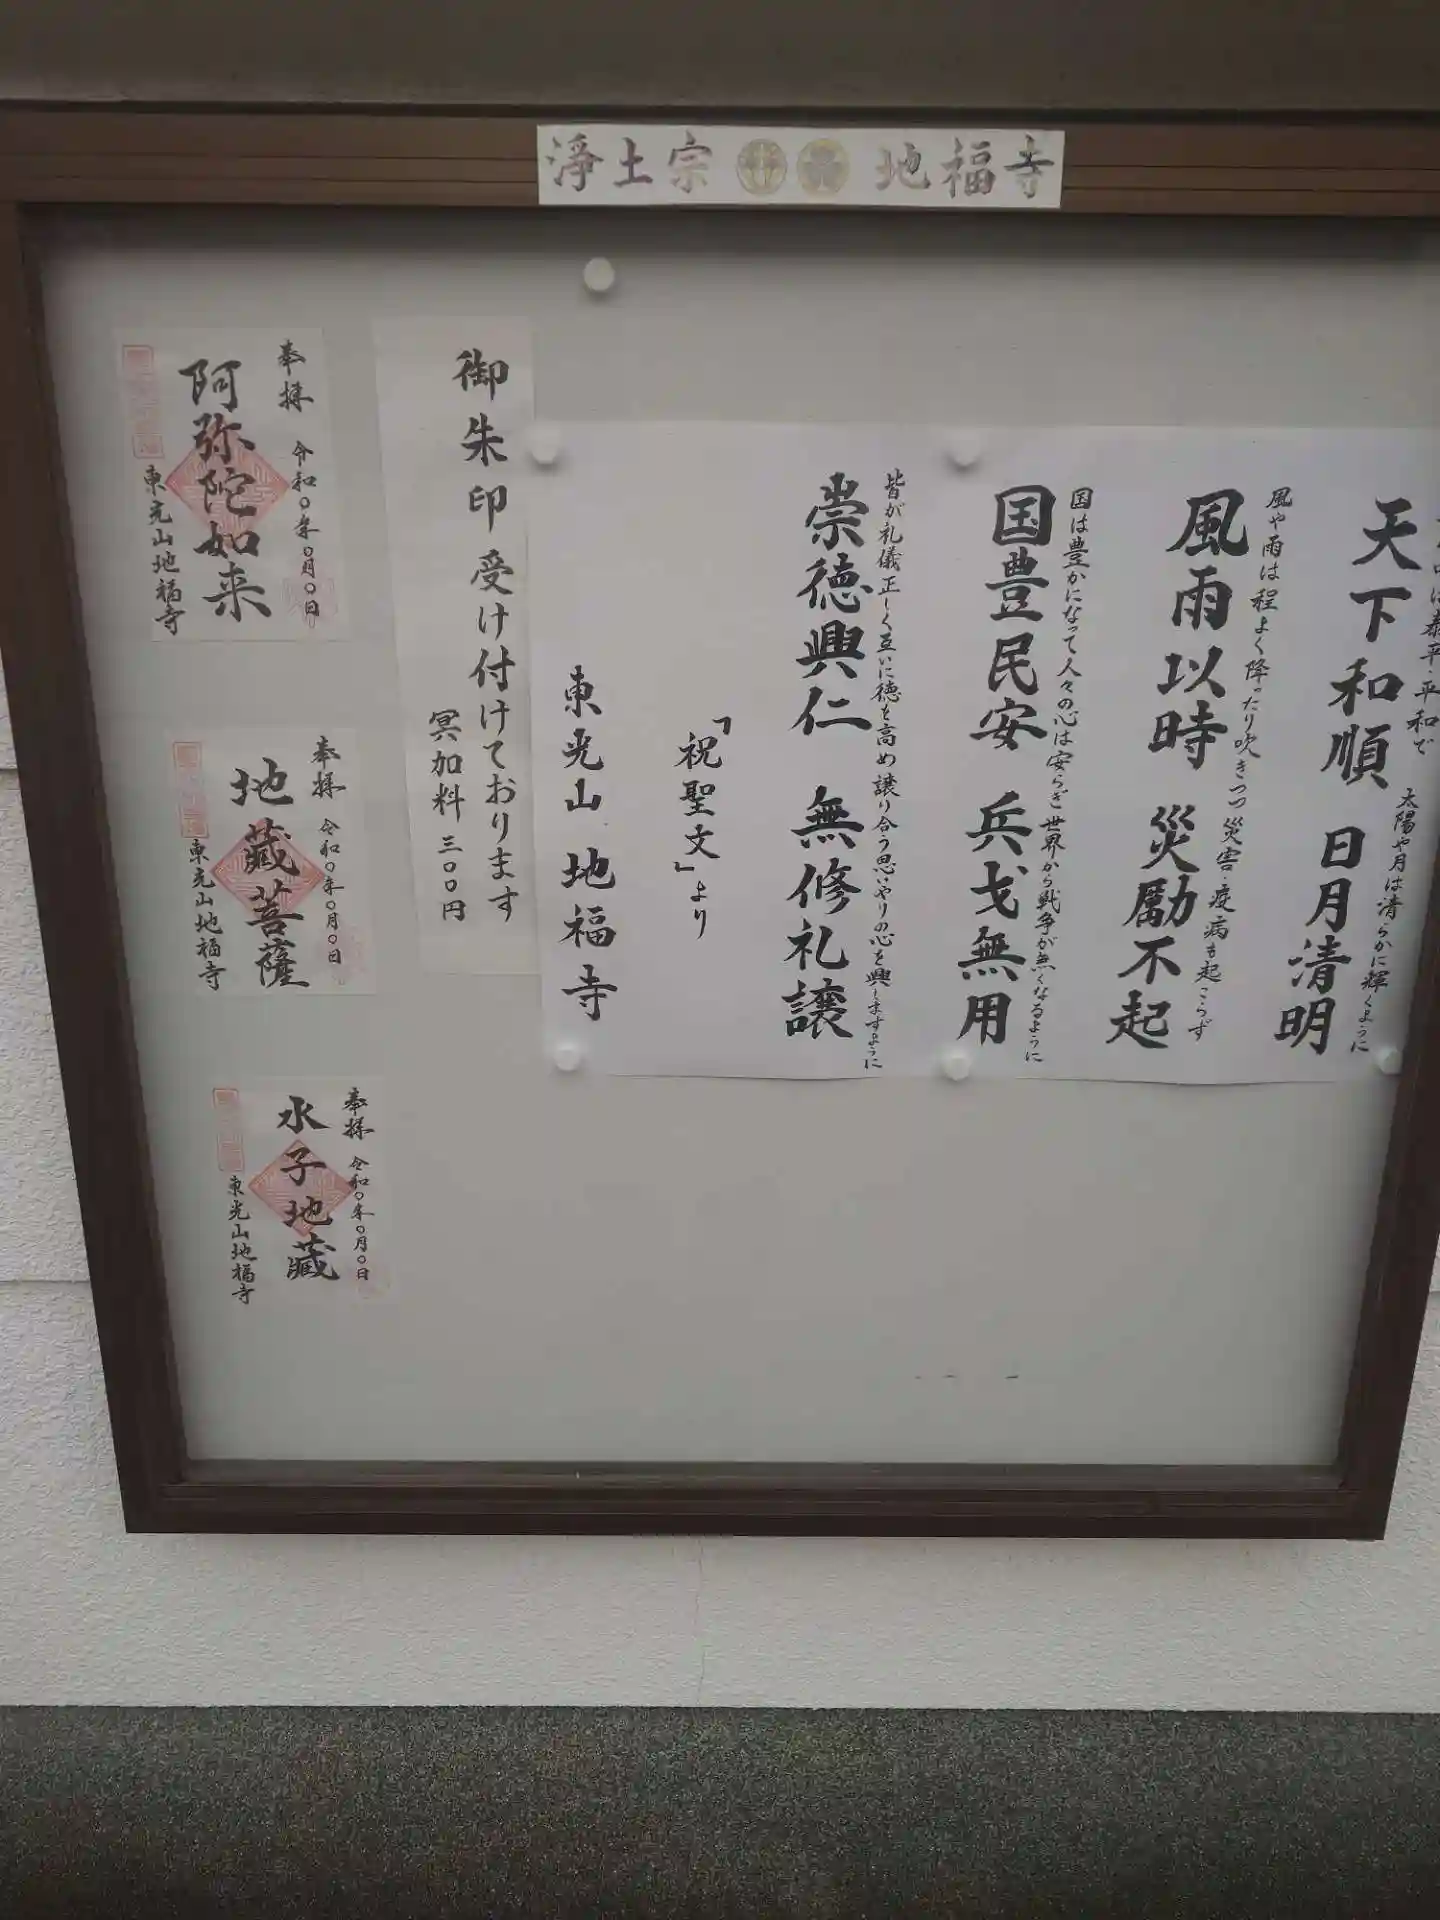 浄土宗 地福寺
天下和順 日月清明
太陽や月は清らかに輝くように
風雨以時 災励不起
風や雨は程よく降ったり吹きつつ災害・疫病も起こらず
国豊民安 兵戈無用
国は豊かになって人々の心は安らぎ世界から戦争が無くなるように
崇徳興仁 無修礼譲
皆が礼儀正しく互いに徳を高め譲り合う思いやりの心を興しますように
「祝聖文」より
東光山 地福寺
御朱印受け付けております
冥加料 三〇〇円
奉拝 令和〇年〇月〇日
阿弥陀如来
東光山地福寺
奉拝 令和〇年〇月〇日
地蔵菩薩
東光山地福寺
奉拝 令和〇年〇月〇日
水子地蔵
東光山地福寺